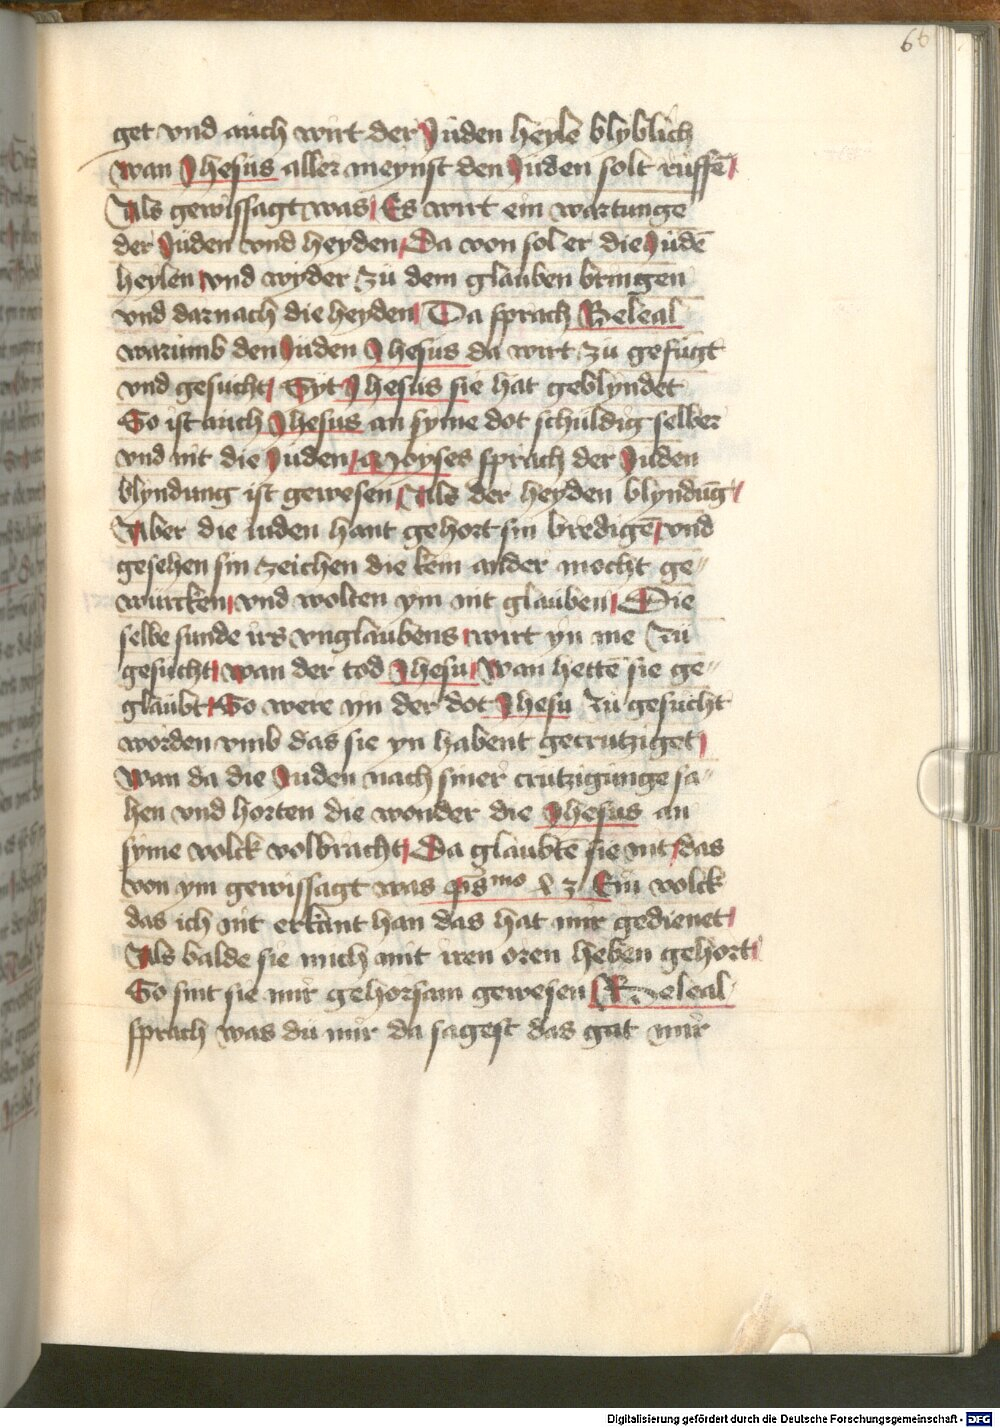 66
get vnd auch wirt der Juden heyle blyblich
wan Jhesus aller meynst den Juden solt ruffē
Als gewissagt was Es wirt ein wartunge
der Juden vnd heyden Da von sol er die Judē
heylen vnd wyder zu dem glauben bringen
vnd darnach die heyden Da sprach Beleal
warumb den Juden Jhesus da wirt zu gefugt
vnd gesucht Syt Jhesus sie hat geblyndet
So ist auch Jhesus an syme dot schuldig selber
vnd nit die Juden Moyses sprach der Juden
blyndung ist gewesen Als der heyden blyndūg
Aber die iuden hant gehort sin bredigē vnd
gesehen sin zeichen die kein ander mocht ge„
wurcken vnd wolten ym nit glauben Die
selbe sunde irs vnglaubens wirt yn me zu
gesucht wan der tod Jhesu Wan hettē sie ge„
glaubt So were yn der dot Jhesu zu gesucht
worden vmb das sie yn habent gecrutziget
Wan da die Juden nach siner crutzigunge sa„
hen vnd horten die wonder die Jhesus an
syme volck volbracht Da glaubtē sie nit das
von ym gewissagt was ps̄mo Ein volck
das ich nit erkant han das hat mir gedienet
Als balde sie mich mit iren oren heben gehort
So sint sie mir gehorsam gewesen Beleal
sprach was du mir da sagest das gat mir
Digitalisierung gefördert durch die Deutsche Forschungsgemeinschaft - DFG